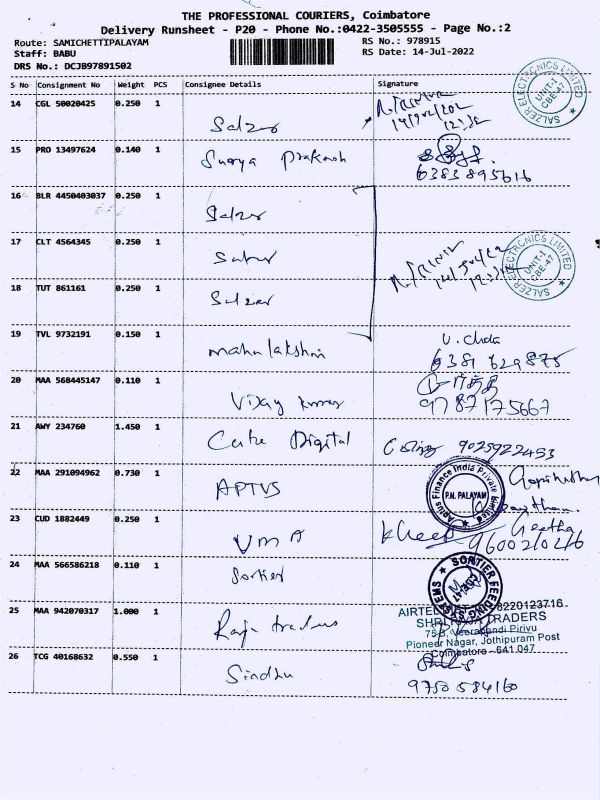 THE PROFESSIONAL COURIERS, Coimbatore
Delivery Runsheet - P20 - Phone No.:0422-3505555 - Page No.:2
Route: SAMICHETTIPALAYAM
RS No.: 978915
Staff: BABU
RS Date: 14-Jul-2022
DRS No.: DCJB97891502
S No Consignment No Weight PCS Consignee Details Signature
14 CGL 50020425 0.250 1
Salzer
SALZER ELECTRONICS LIMITED
UNIT-I
CBE-47
15 PRO 13497624 0.140 1
Surya Prakash
6383895616
16 BLR 4450403037 0.250 1
Salzer
17 CLT 4564345 0.250 1
Salzer
SALZER ELECTRONICS LIMITED
UNIT-I
CBE-47
18 TUT 861161 0.250 1
Salzer
19 TVL 9732191 0.150 1
mahalakshmi
6381629875
20 MAA 568445147 0.110 1
Vijay kumar
9787175667
21 AWY 234760 1.450 1
Cube Digital
9025922453
22 MAA 291094962 0.730 1
APTUS
Aptus Finance India Private Limited
P.N. PALAYAM
23 CUD 1882449 0.250 1
UMA
Geetha
9600210216
24 MAA 566586218 0.110 1
Sortier
SORTIER FEEDING SYSTEMS
25 MAA 942070317 1.000 1
Raja traders
8220123716
TRADERS
75-B, Veerapandi Pirivu
Pioneer Nagar, Jothipuram Post
Coimbatore - 641 047
26 TCG 40168632 0.550 1
Sindhu
9750584160